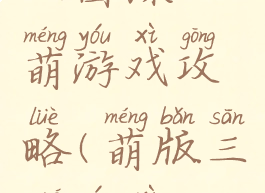 méng yóu xì gōng
萌游戏攻
lüè méng bǎn sān
略(萌版三